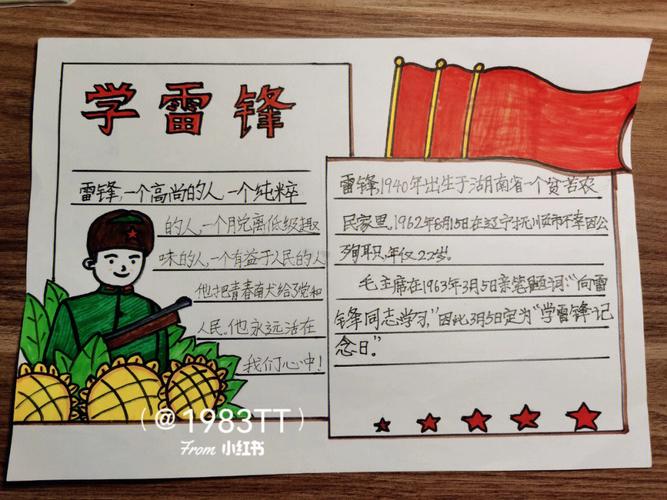 学雷锋
雷锋,一个高尚的人,一个纯粹
的人,一个脱离低级趣
味的人,一个有益于人民的人
他把青春献给了党和
人民,他永远活在
我们心中!
雷锋,1940年出生于湖南省一个贫苦农
民家里,1962年8月15日在辽宁抚顺市不幸因公
殉职,年仅22岁。
毛主席在1963年3月5日亲笔题词:“向雷
锋同志学习,”因此3月5日定为“学雷锋记
念日。”
(@1983TT)
From 小红书